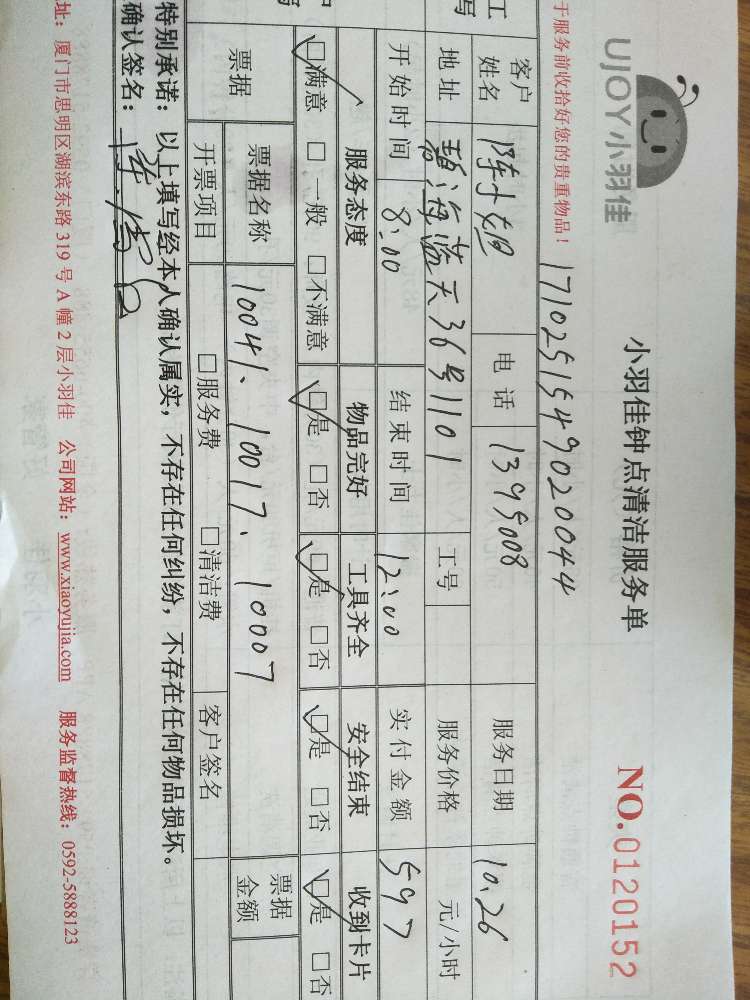 UJOY小羽佳
小羽佳钟点清洁服务单
NO.0120152
于服务前收拾好您的贵重物品！
1710251549020044
客户姓名 陈小姐 电话 1395008 服务日期 10.26
地址 碧海蓝天36号1101 工号 服务价格 元/小时
开始时间 8:00 结束时间 12:00 实付金额 597
服务态度 物品完好 工具齐全 安全结束 收到卡片
☑满意 □一般 □不满意 ☑是 □否 ☑是 □否 ☑是 □否 ☑是 □否
票据 票据名称 10041、10017、10007 票据金额
开票项目 □服务费 □清洁费 客户签名
特别承诺：以上填写经本人确认属实，不存在任何纠纷，不存在任何物品损坏。
确认签名：
址：厦门市思明区湖滨东路319号A幢2层小羽佳 公司网站：www.xiaoyujia.com 服务监督热线：0592-5888123